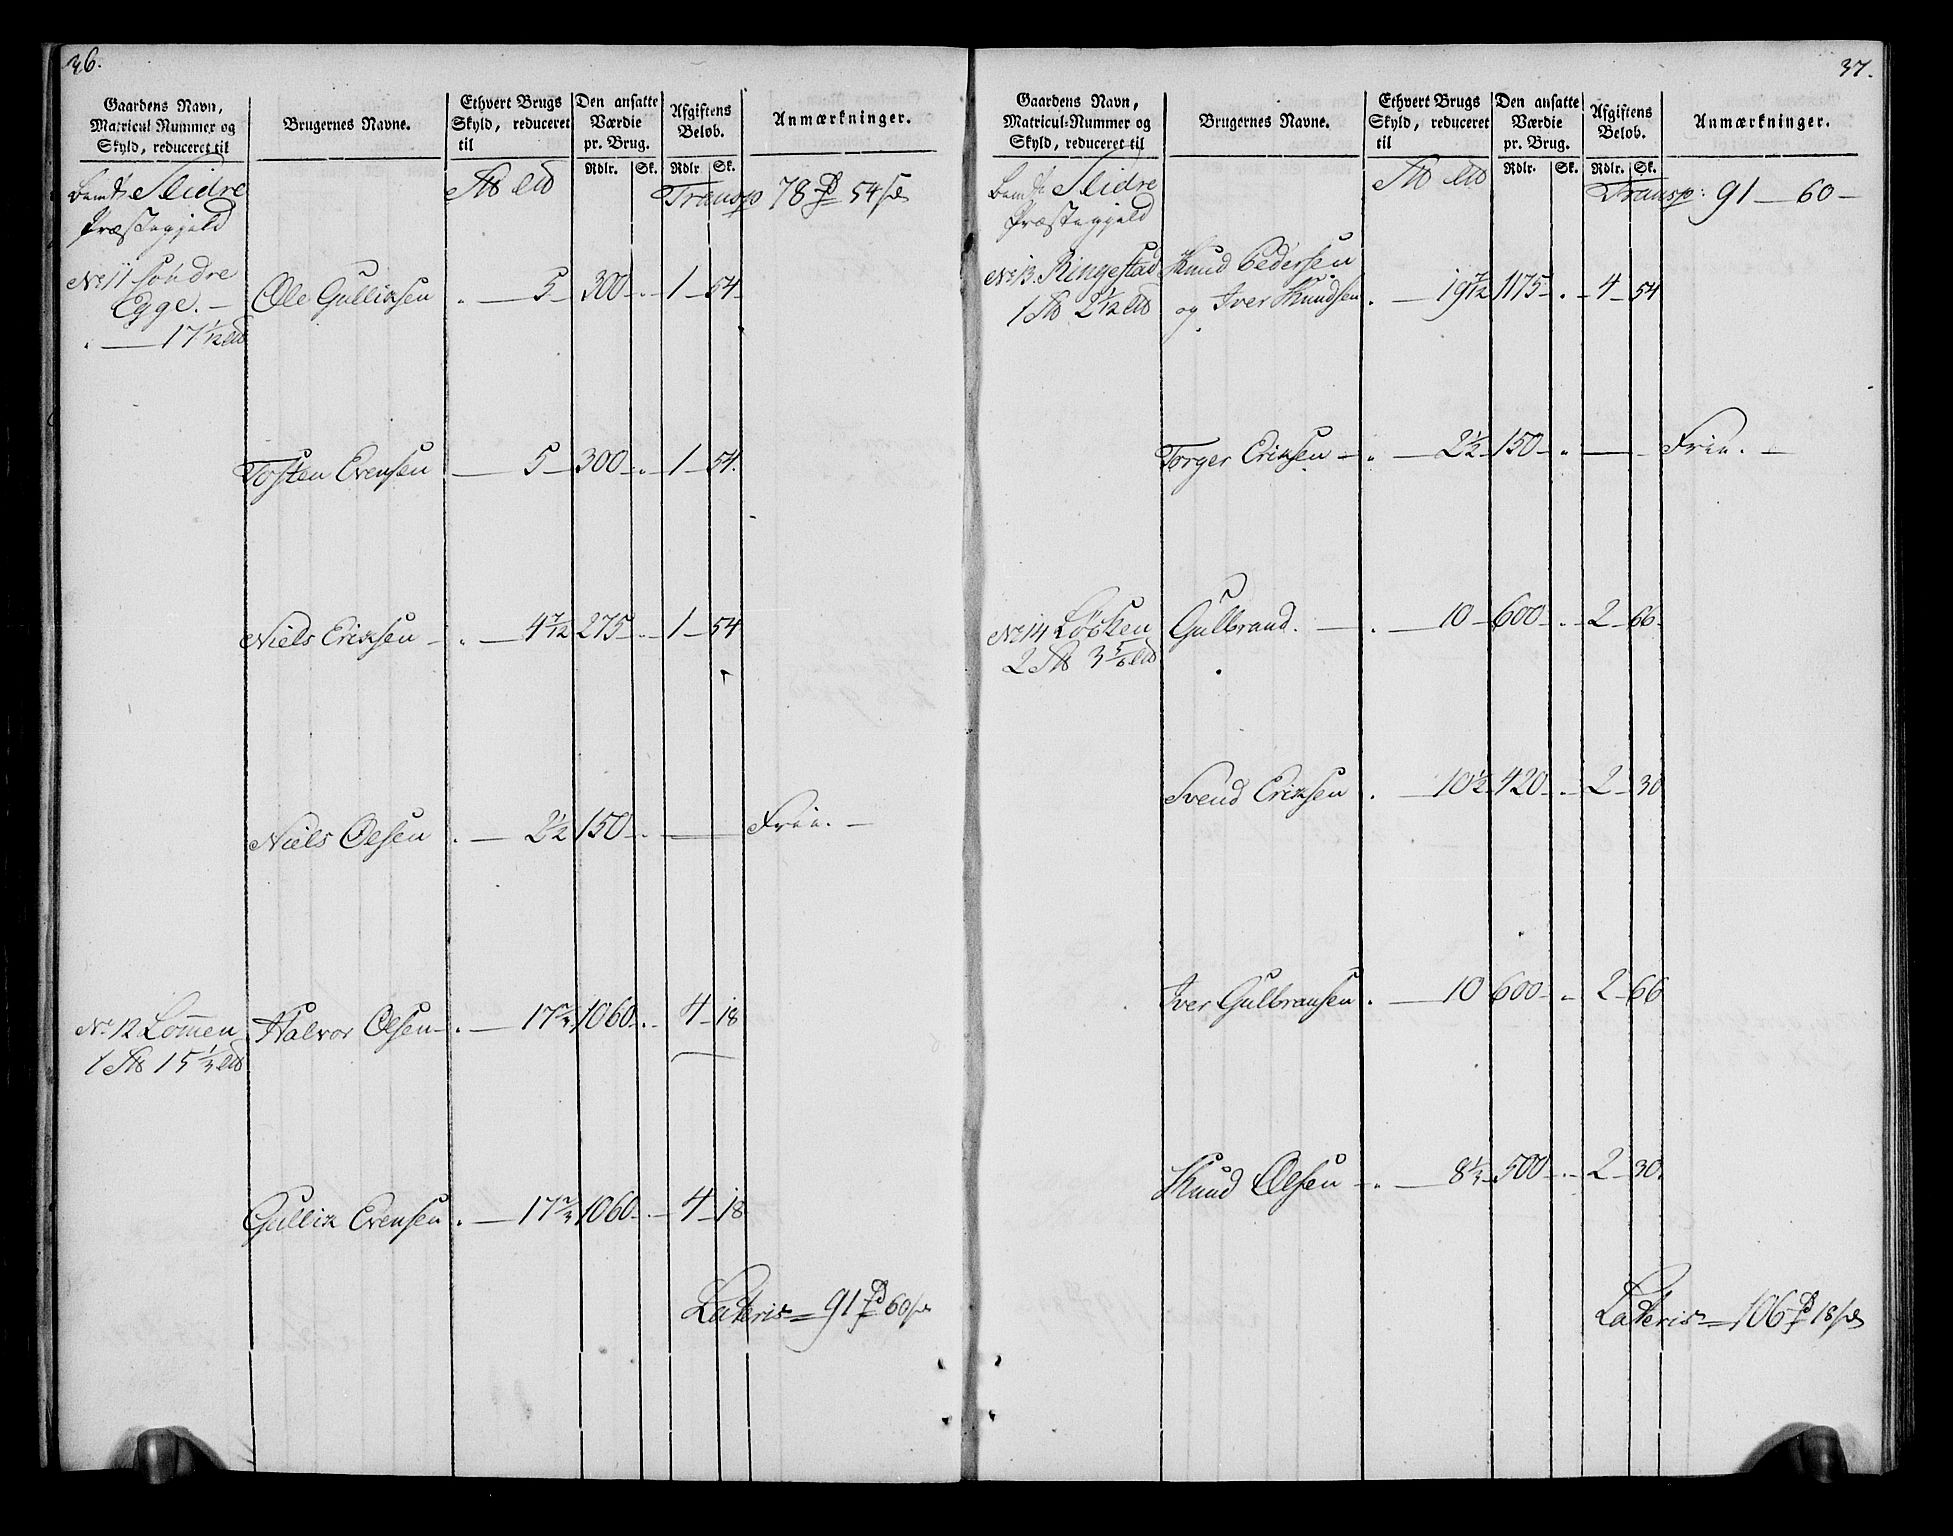 36.
Gaardens Navn,
Matricul Nummer og
Skyld, reduceret til
Brugernes Navne.
Ethvert Brugs
Skyld, reduceret
til
Den ansatte
Værdie
pr. Brug.
Rdlr. Sk.
Afgiftens
Beløb.
Rdlr. Sk.
Anmærkninger.
Slidre
Præstegjeld
Transp 78 54
No 11 søndre
Egge. —
" — 17 1/12
Ole Gulliksen " — 5 — 300 — " — 1 — 54 —
Tosten Evensen — 5 — 300 — " — 1 — 54.
Niels Eriksen — " — 4 7/12 275 — " — 1 — 54
Niels Olsen " — 2 1/2 150 — " — Frie. —
No 12 Lomen
1 15 1/3
Halvor Olsen — " — 17 2/3 1060 — " — 4 — 18
Gullik Evensen " — 17 2/3 1060 — " — 4 — 18
Lateris = 91 60
37.
Gaardens Navn,
Matricul-Nummer og
Skyld, reduceret til
Brugernes Navne.
Ethvert Brugs
Skyld, reduceret
til
Den ansatte
Værdie
pr. Brug.
Rdlr. Sk.
Afgiftens
Beløb.
Rdlr. Sk.
Anmærkninger.
Slidre
Præstegjeld
Transp: 91 — 60 —
No 13 Ringestad
1 2 1/12
Knud Pedersen
og Iver Knudsen " — 19 7/12 1175 — " — 4 — 54
Torger Eriksen — " — 2 1/2 150 — " — Frie. —
No 14 Løcken
2 3 5/6
Gulbrand. — " — 10 — 600 — " — 2 — 66
Svend Eriksen " — 10 1/2 420 — " — 2 — 30
Iver Gulbransen " — 10 600 — " — 2 — 66
Knud Olsen — " — 8 1/3 500 — " — 2 — 30.
Lateris = 106 18